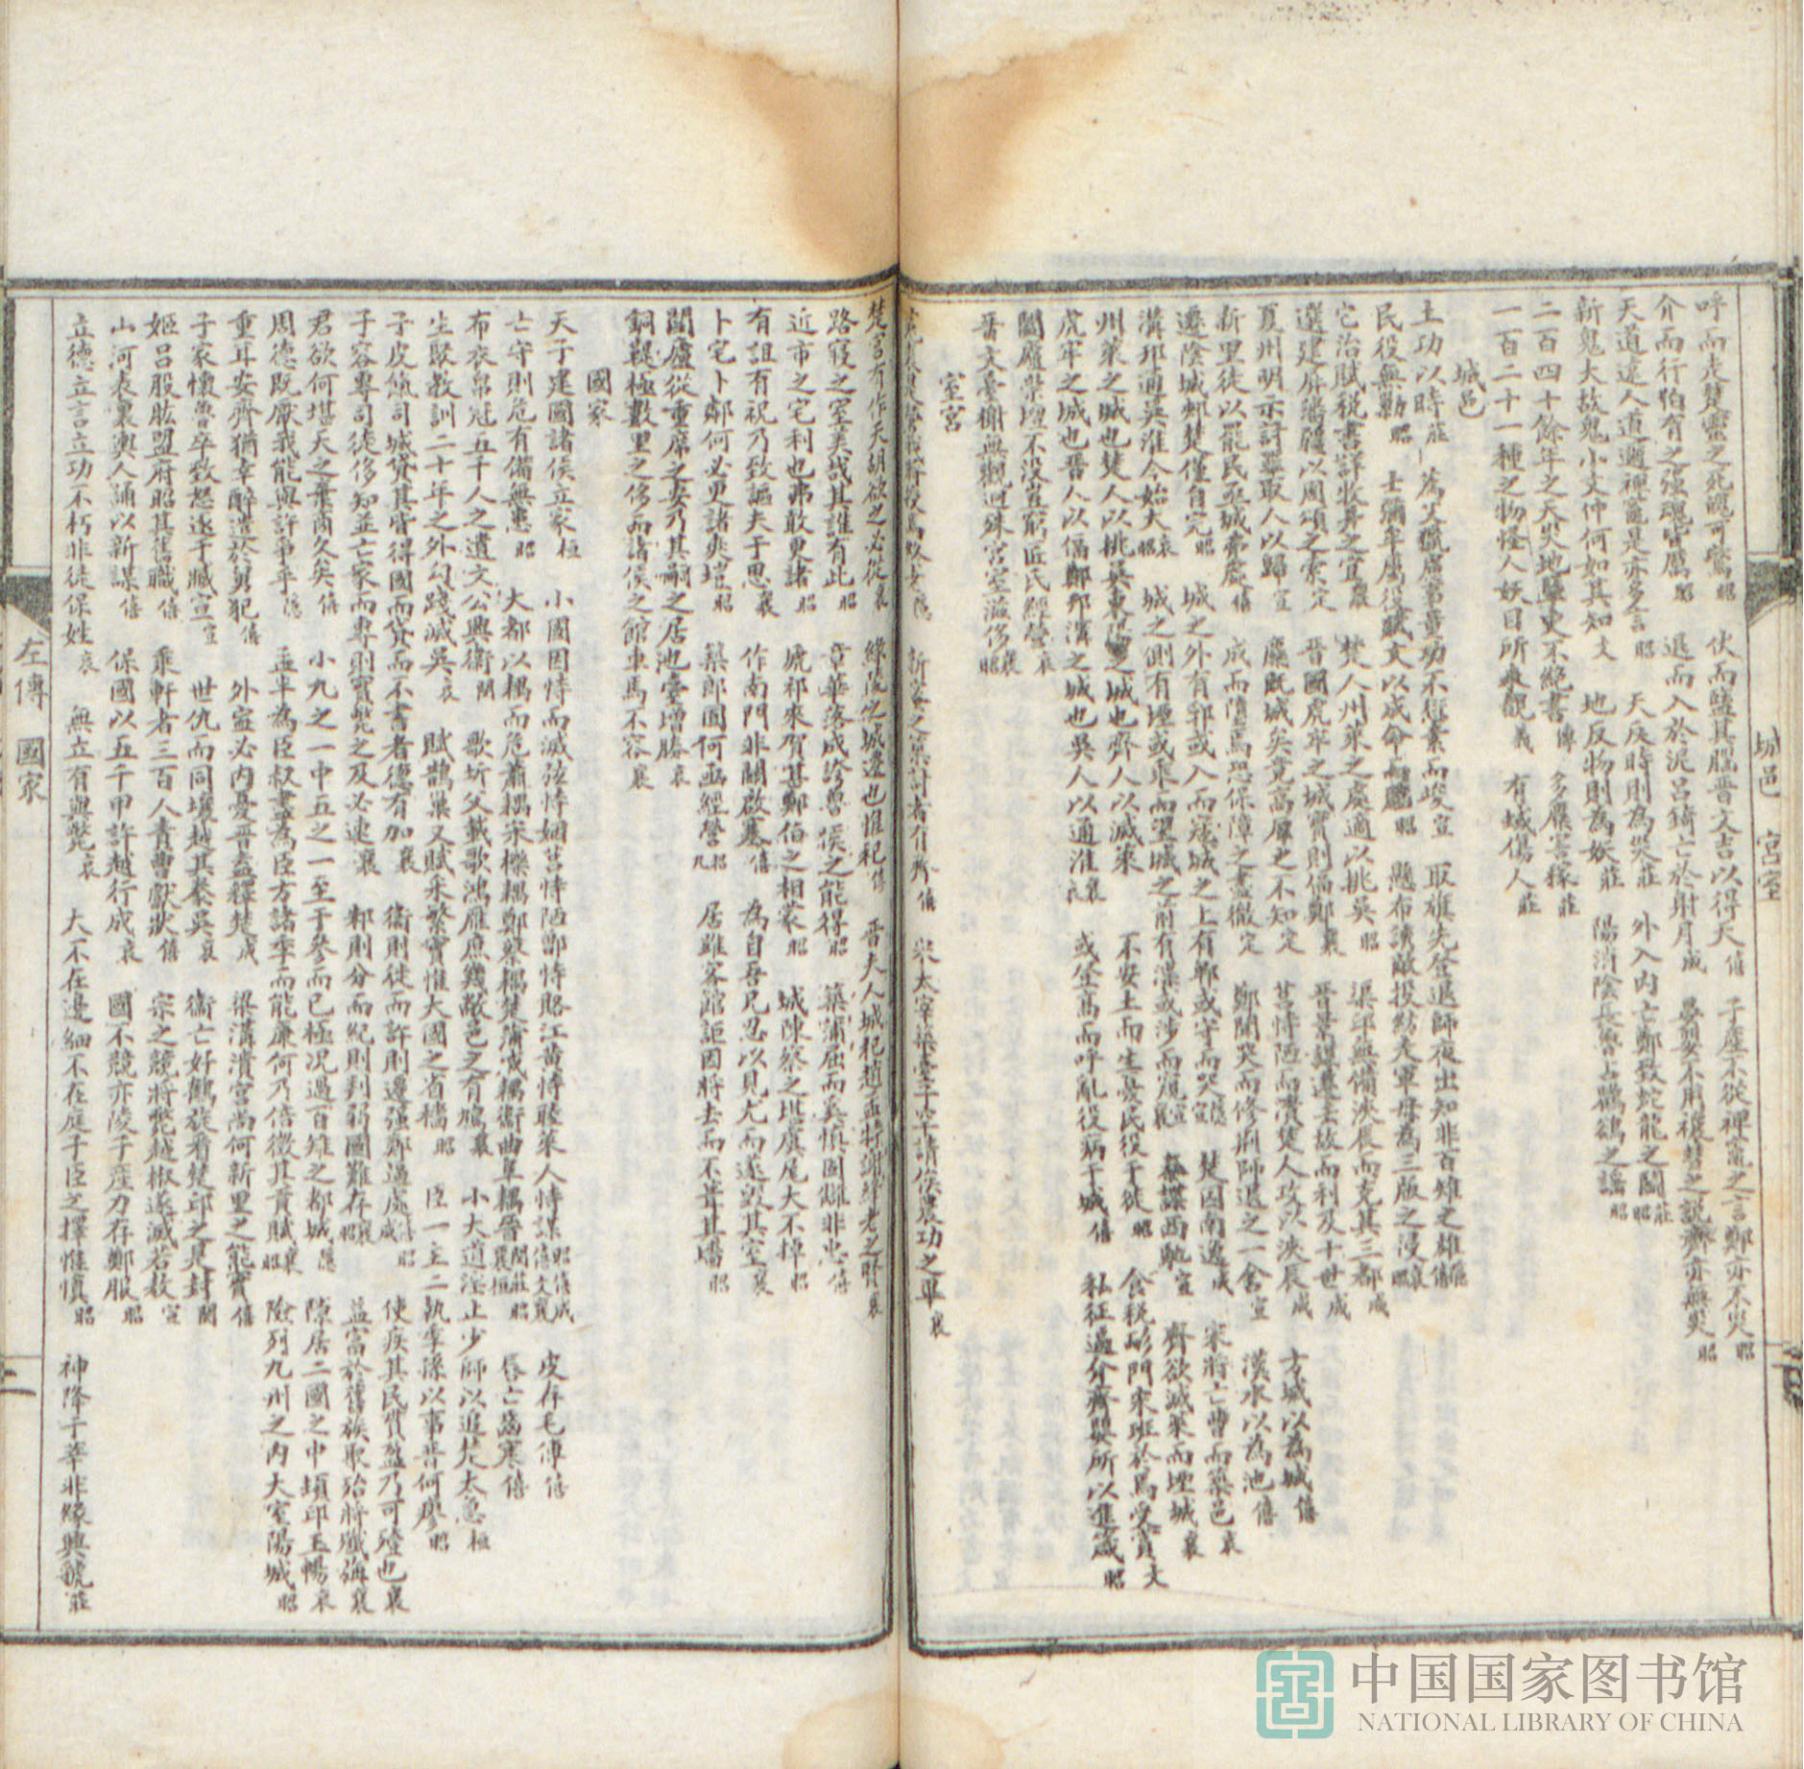 呼而走楚靈之死魄可驚昭 伏而鹽其腦晉文吉以得天僖 子產不從裨竈之言鄭亦不災昭
介而行怕有之强魂皆厲昭 退而入於泥呂錡亡於射月成 晏嬰不用禳彗之說齊亦無災昭
天道遠人道邇裨竈是亦多言昭 天反時則為災莊 外入內亡鄭致蛇龍之鬬莊昭
新鬼大故鬼小文仲何如其知文 地反物則為妖莊 陽消陰長魯占鸜鵒之謠昭
二百四十餘年之天災地孽史不絕書傳 多麋害稼莊
一百二十一種之物怪人妖目所來觀義 有蜮傷人莊
城邑
土功以時莊 蒍艾獵慮事量功不愆素而峻宣 取旗先登退師夜出知非百雉之雄
民役無勤昭 士彌牟屬役賦丈以成命而 昭 懸布誘敵投紡老軍毋為三版之浸
它治賦稅書詳牧井之宜襄 楚人州萊之處適以挑吳昭 渠邱無備浹辰而克其三都成
選建屏藩疆以周頌之索定 晉國虎牢之城實則偪鄭襄 晉景謀遷去故而利及十世成 方城以為城僖
夏州明示討罪取人以歸宣 麇既城矣竟高厚之不知定 莒恃陋而潰楚人攻以浹辰成 漢水以為池僖
新里徒以罷民亟城弗處僖 成而隋焉恐保障之盡撤定 鄭聞哭而修荊師退之一舍宣
遷陰城郟楚僅自完昭 城之外有郛或入而寇城之上有陴或守而哭 楚因南遷 宋將亡曹而築邑哀
溝邗通吳淮今始大哀 城之側有堙或乘而望城之前有濠或涉而窺 秦諜西 宣 齊欲滅萊而堙城襄
州萊之城也楚人以挑吳東陽之城也齊人以滅萊 不安土而生憂民役于徒昭 食稅彭門宋班於焉受賞文
虎牢之城也晉人以偪鄭邗溝之城也吳人以通淮 或登高而呼亂役病于城僖 私征逼介齊嬰所以進箴昭
闔廬榮壇不沒直窮匠氏經營哀
晉文臺榭無觀迥殊宮室滥侈襄
室宮
宋太宰築臺子罕請俟農功之畢襄
城邑 宮室
楚宮有作天胡欲之必從襄 緣陵之城遷也惟杞僖 晉夫人城杞趙孟將謝絳老之 襄
路寢之室美哉其誰有此昭 章華落成誇魯侯之能得昭 築蒲屈而寘慎固讎非忠僖
近市之宅利也弗敢更諸昭 虒祁來賀甚鄭伯之相蒙昭 城陳蔡之堪虞尾大不掉昭
有詛有祝乃致謳夫于思襄 作南門非關啟塞僖 為自吾兄忍以見尤而遂毀其室襄
卜宅卜鄰何必更諸爽塏昭 築郎囿何亟經營昭九 居雖客館詎因將去而不葺其墻昭
闔廬從重席之安乃其嗣之居池臺增勝哀
銅鞮極數里之侈而諸侯之館車馬不容襄
國家
天子建國諸侯立家桓 小國因恃而滅弦恃姻莒恃陋鄫恃賂江黃恃睦萊人恃謀 皮存毛傅僖
亡守則危有備無患昭 大都以耦而危蕭耦宋櫟耦鄭蔡耦楚蒲戚耦衞曲阜耦晉 唇亡齒寒僖
布衣帛冠五千人之遺文公興衞閔 歌圻父載歌鴻雁庶幾敝邑之有鳩襄 小大道淫止少師以追楚太急桓
生聚教訓二十年之外勾踐滅吳哀 賦鵲巢又賦采蘩實惟大國之省穡昭 臣一主二執季孫以事晉何瘳昭
子皮餼司城貸其皆得國而貸而不書者德有加襄 衞則徒而許則遷强鄭逼處 使疾其民貫盈乃可殪也襄
子容專司徒侈知並亡家而專則實斃之及必速襄 邾則分而紀則判弱國難存 益富於舊族取殆將殲旃襄
君欲何堪天之棄商久矣僖 小九之一中五之一至于參而已極况過百雉之都城隱 隙居二國之中頃邱玉暢哀
周德既厭我能與許爭乎隱 孟半為臣叔盡為臣方諸季而能廉何乃倍徵其貢賦襄昭 險列九州之內大室陽城昭
重耳安齊猶幸醉遣於舅犯僖 外寧必內憂晉盍釋楚成 梁溝潰宮尚何新里之能實僖
子家懷魯卒致怒逐于臧宣宣 世仇而同壤越其豢吳哀 衞亡好鶴旋看楚邱之是封閔
姬呂股肱盟府昭其舊職僖 乘軒者三百人責曹獻狀僖 宗之競將斃越椒遂滅若敖宣
山河表裏輿人誦以新謀僖 保國以五千甲許越行成哀 國不競亦陵子產力存鄭服昭
立德立言立功不朽非徒保姓襄 無立有與斃哀 大不在邊細不在庭子臣之擇惟慎昭 神降于莘非緣興虢莊
左傳 國家
中国国家图书馆
NATIONAL LIBRARY OF CHINA